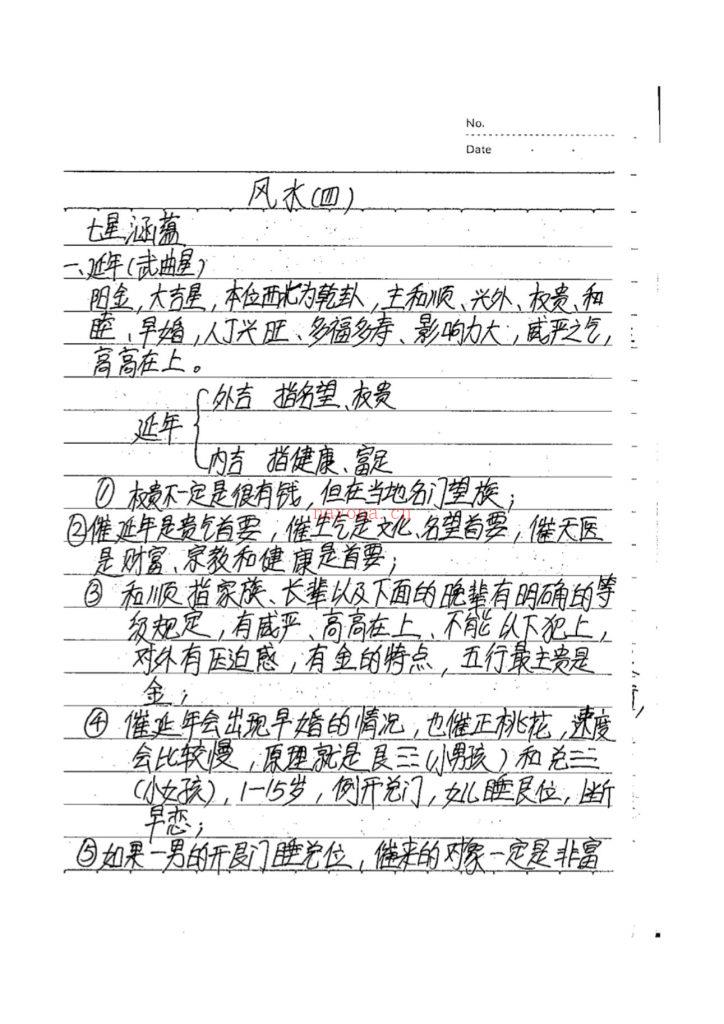 No.
Date
风水(四)
七星涵蕴
一、延年(武曲星)
阳金,大吉星,本位西北为乾卦,主和顺、兴外、权贵、和
睦、早婚,人丁兴旺、多福多寿、影响力大,威严之气,
高高在上。
外吉 指名望、权贵
延年
内吉 指健康、富足
① 权贵不一定是很有钱,但在当地名门望族;
②催延年是贵气首要,催生气是文化、名望首要,催天医
是财富、宗教和健康是首要;
③ 和顺指家族、长辈以及下面的晚辈有明确的等
级规定,有威严、高高在上、不能以下犯上,
对外有压迫感,有金的特点,五行最主贵是
金;
④ 催延年会出现早婚的情况,也催正桃花,速度
会比较慢,原理就是艮☶(小男孩)和兑☱
(小女孩),1-15岁,例开兑门,女儿睡艮位,断
早恋;
⑤如果一男的开艮门睡兑位,催来的对象一定是非富